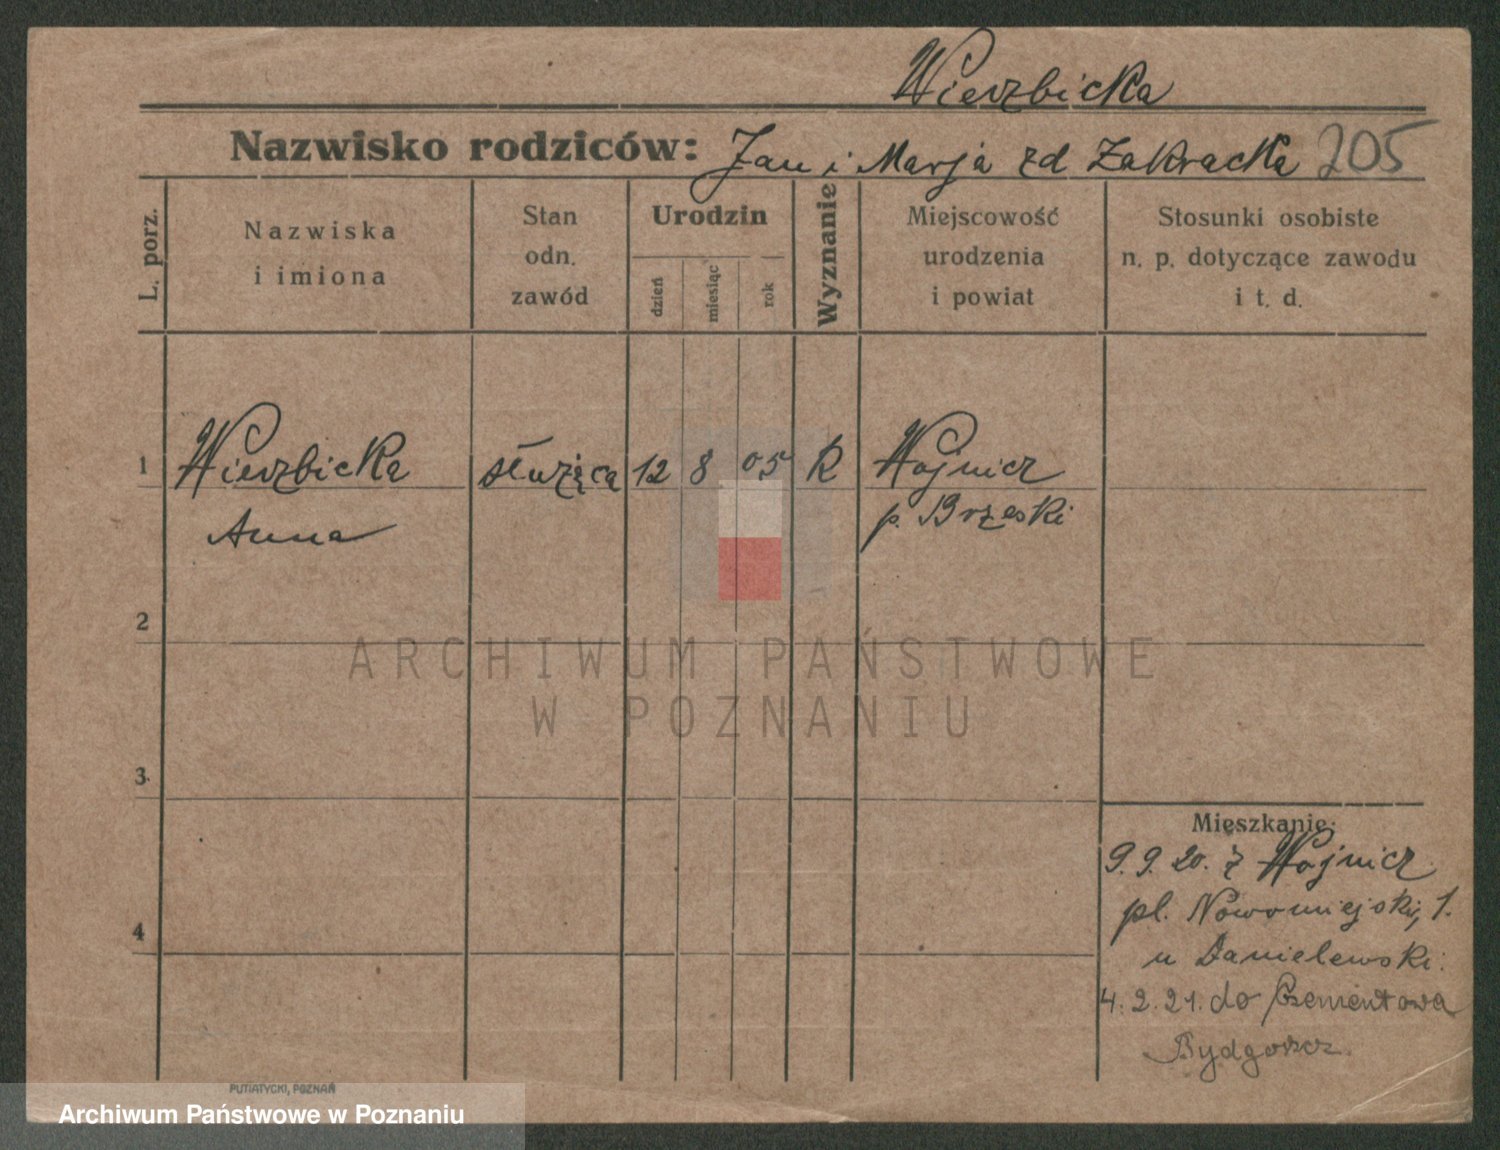 Wierzbicka
Nazwisko rodziców: Jan i Marja zd Zakracka 205
L. porz.
Nazwiska
i imiona
Stan
odn.
zawód
Urodzin
dzień
miesiąc
rok
Wyznanie
Miejscowość
urodzenia
i powiat
Stosunki osobiste
n. p. dotyczące zawodu
i t. d.
1 Wierzbicka służąca 12 8 05 R Wojnicz
Anna p. Brzeski
2
ARCHIWUM PAŃSTWOWE
W POZNANIU
3.
4
Mieszkanie:
9.9.20. z Wojnicz
pl. Nowomiejski, 1.
u Danielewski.
4.2.21. do Cementowa
Bydgoszcz
PUTIATYCKI, POZNAŃ
Archiwum Państwowe w Poznaniu